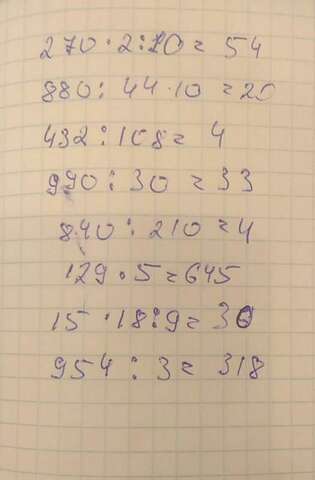 270·2:10=54
880:44·10=20
432:108=4
990:30=33
840:210=4
129·5=645
15·18:9=30
954:3=318